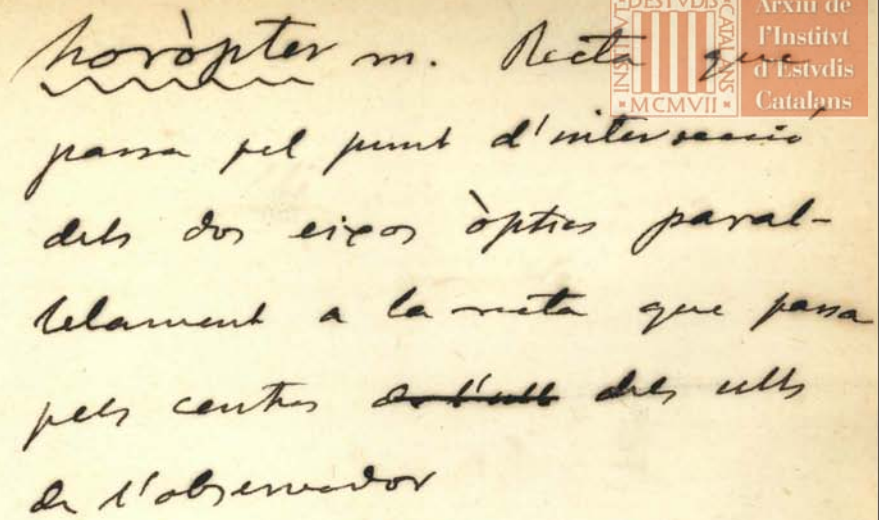 horòpter m. Recta que
passa pel punt d'intersecció
dels dos eixos òptics paral-
lelament a la recta que passa
pels centres de l'ull dels ulls
de l'observador
INSTITVT·D'ESTVDIS·CATALANS
·MCMVII·
Arxiu de
l'Institvt
d'Estvdis
Catalans